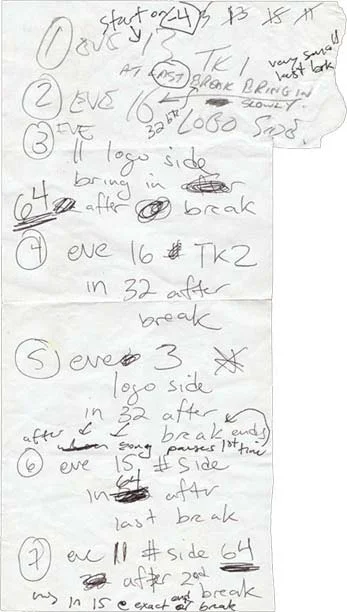 start on 64
① EVE 13 TK 1
very small
last brk
AT LAST BREAK BRING IN
SLOWLY.
② EVE 16
32 LOGO Side.
③ EVE
11 logo side
bring in
64 after break
4 eve 16 # TK2
in 32 after
break
⑤ eve 3
logo side
in 32 after
after break ends
song pauses 1st time
⑥ eve 15 # side
64
in aftr
last break
⑦ eve 11 # side 64
after 2nd break
in 15 @ exact break